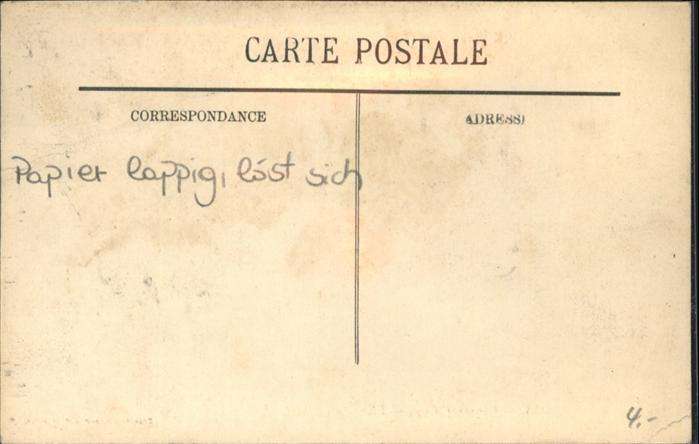 CARTE POSTALE
CORRESPONDANCE
ADRESSE
Papier lappig, löst sich
4.-